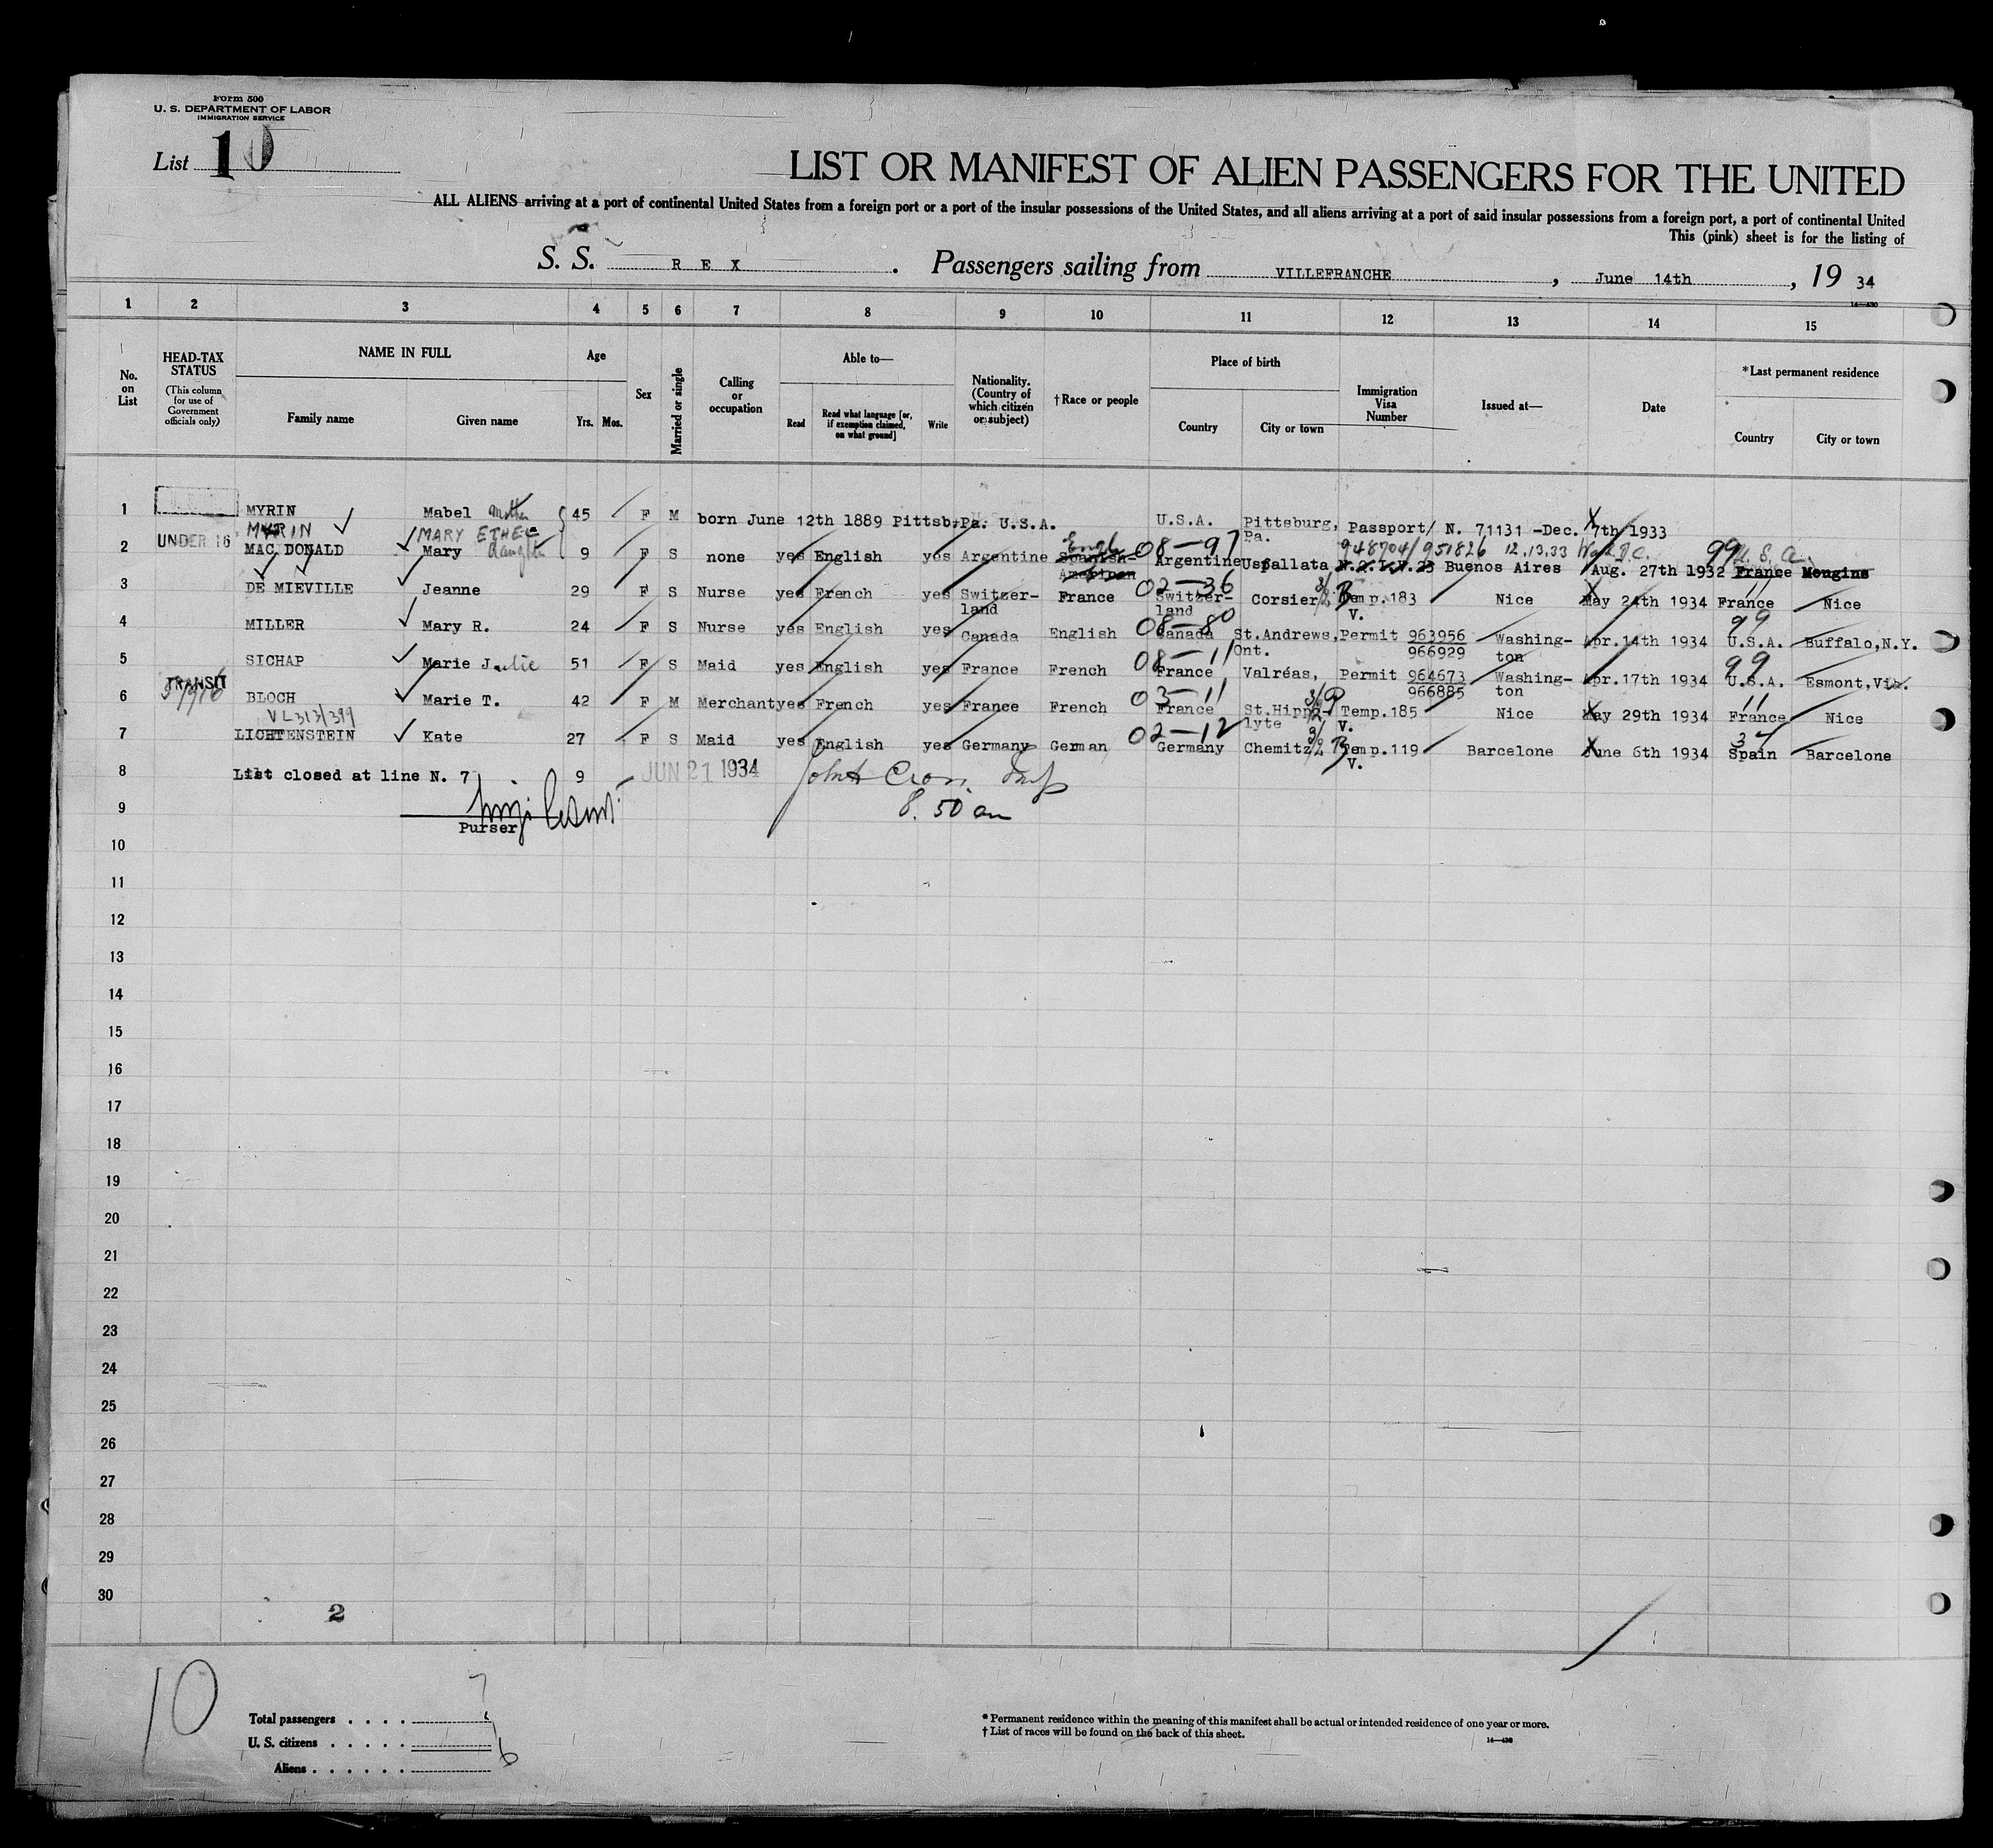 Form 500
U. S. DEPARTMENT OF LABOR
IMMIGRATION SERVICE
List 10
LIST OR MANIFEST OF ALIEN PASSENGERS FOR THE UNITED
ALL ALIENS arriving at a port of continental United States from a foreign port or a port of the insular possessions of the United States, and all aliens arriving at a port of said insular possessions from a foreign port, a port of continental United
This (pink) sheet is for the listing of
S. S. REX. Passengers sailing from VILLEFRANCHE, June 14th, 19 34
14—430
1 2 3 4 5 6 7 8 9 10 11 12 13 14 15
No. on List
HEAD-TAX STATUS (This column for use of Government officials only)
NAME IN FULL
Family name Given name
Age
Yrs. Mos.
Sex
Married or single
Calling or occupation
Able to—
Read Read what language [or, if exemption claimed, on what ground] Write
Nationality. (Country of which citizen or subject)
†Race or people
Place of birth
Country City or town
Immigration Visa Number
Issued at—
Date
*Last permanent residence
Country City or town
1 MYRIN Mabel mother 45 F M born June 12th 1889 Pittsb. Pa. U.S.A. U.S.A. Pittsburg, Pa. Passport/ N. 71131 -Dec. 7th/1933
MYRIN MARY ETHEL
UNDER 16
2 MAC DONALD Mary daughter 9 F S none yes English yes Argentine Spanish-American Engl 08-97 Argentine Uspallata 948704/951826 12.13.33 Wash D.C. N.Q.I.V.23 Buenos Aires Aug. 27th 1932 99 U.S.A. France Mougins
3 DE MIEVILLE Jeanne 29 F S Nurse yes French yes Switzer-land France 02-36 Switzer-land Corsier 3/2 Temp.183 V. Nice May 24th 1934 11 France Nice
4 MILLER Mary R. 24 F S Nurse yes English yes Canada English 08-80 Canada St.Andrews, Ont. Permit 963956 966929 Washing-ton Apr.14th 1934 99 U.S.A. Buffalo,N.Y.
5 SICHAP Marie Julie 51 F S Maid yes English yes France French 08-11 France Valréas, Permit 964673 966885 Washing-ton Apr.17th 1934 99 U.S.A. Esmont,Via.
TRANSIT
6 BLOCH Marie T. 42 F M Merchant yes French yes France French 03-11 France St.Hippo-lyte 3/2 Temp.185 V. Nice May 29th 1934 11 France Nice
VL313/399
7 LICHTENSTEIN Kate 27 F S Maid yes English yes Germany German 02-12 Germany Chemitz 3/2 Temp.119 V. Barcelone June 6th 1934 37 Spain Barcelone
8 List closed at line N. 7 9 JUN 21 1934
8.50 am
9
Purser
10
11
12
13
14
15
16
17
18
19
20
21
22
23
24
25
26
27
28
29
30
2
10
7
Total passengers . . . .
U. S. citizens . . . . . 1
Aliens . . . . . . 6
* Permanent residence within the meaning of this manifest shall be actual or intended residence of one year or more.
† List of races will be found on the back of this sheet.
14—430